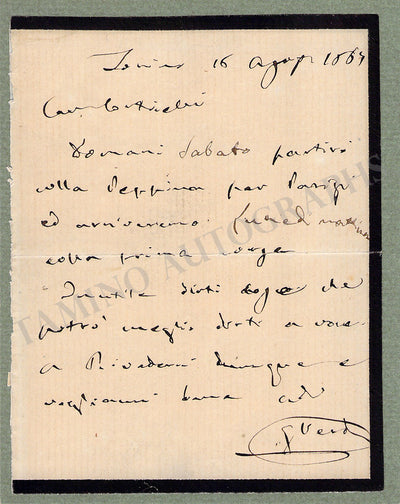 Torino 16 Agos 1867
Domani Sabato partirò
colla Peppina per Parigi
ed arriveremo Lunedì mattina
colla prima corsa
Inutile dirti cose che
potrò meglio dirti a voce
a Rivederci dunque e
vogliami bene add
G Verdi
TAMINO AUTOGRAPHS